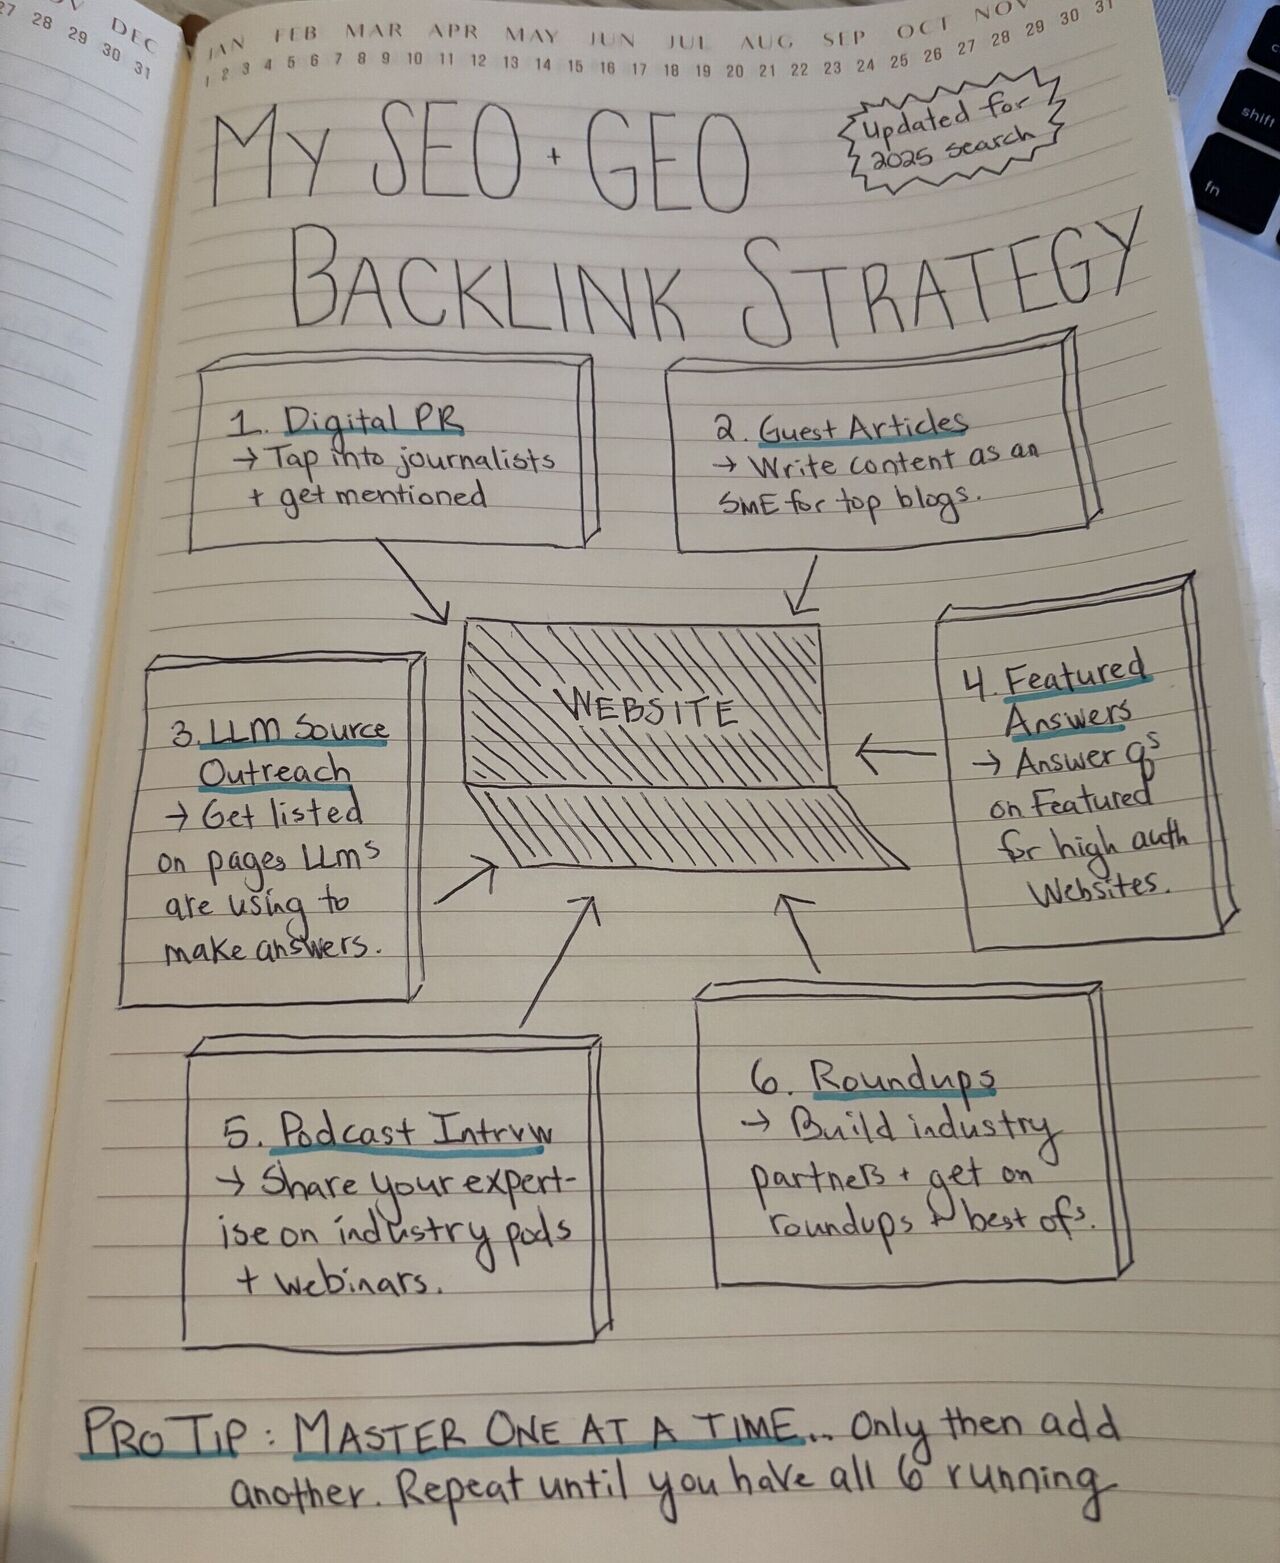 27 28 29 30 31
DEC
JAN FEB MAR APR MAY JUN JUL AUG SEP OCT NOV
1 2 3 4 5 6 7 8 9 10 11 12 13 14 15 16 17 18 19 20 21 22 23 24 25 26 27 28 29 30 31
shift
fn
Updated for
2025 search
MY SEO + GEO
BACKLINK STRATEGY
1. Digital PR
→ Tap into journalists
+ get mentioned
2. Guest Articles
→ Write content as an
SME for top blogs.
WEBSITE
3. LLM Source
Outreach
→ Get listed
on pages LLMs
are using to
make answers.
4. Featured
Answers
→ Answer qs
on Featured
for high auth
Websites.
5. Podcast Intrvw
→ Share your expert-
ise on industry pods
+ webinars.
6. Roundups
→ Build industry
partners + get on
roundups + best ofs.
PRO TIP: MASTER ONE AT A TIME... Only then add
another. Repeat until you have all 6 running